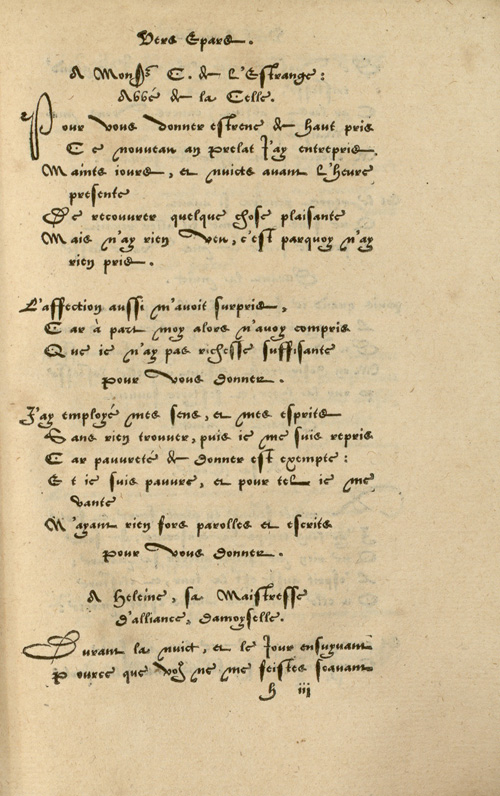 Vers Epars.
A Monsr C. de L'Estrange:
Abbé de la Celle.
Pour vous donner estrene de haut pris
Ce nouveau an prelat J'ay entrepris
Mainte iours, et nuicts avant l'heure
presente
De recouvrer quelque chose plaisante
Mais n'ay rien veu, c'est parquoy n'ay
rien pris.
L'affection aussi m'avoit surpris,
Car à part moy alors n'avoy compris
Que ie n'ay pas richesse suffisante
pour vous donner.
J'ay employé mes sens, et mes esprits
Sans rien trouver, puis ie me suis repris
Car pauvreté de donner est exempte:
Et ie suis pauvre, et pour tel ie me
vante
N'ayant rien fors parolles et escrits
pour vous donner.
A Heleine, sa Maistresse
d'alliance, damoyselle.
Durant la nuict, et le Jour ensuyvant
Pource que vous ne me feistes scavant
h iii